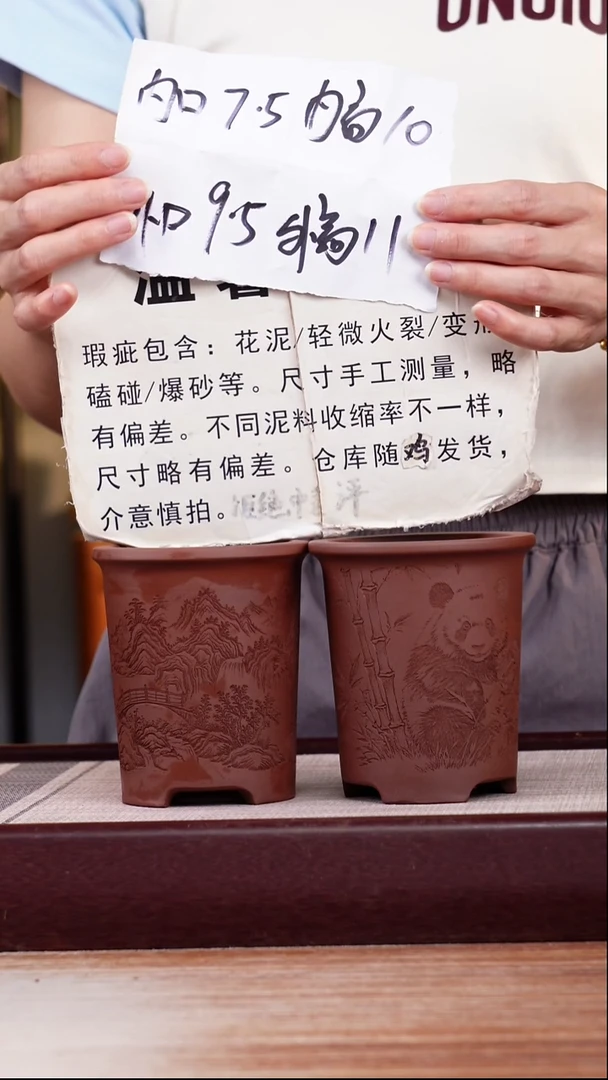 内口7.5 内高10
外口9.5 外高11
瑕疵包含：花泥/轻微火裂/变形
磕碰/爆砂等。尺寸手工测量，略
有偏差。不同泥料收缩率不一样，
尺寸略有偏差。仓库随鸡发货，
介意慎拍。